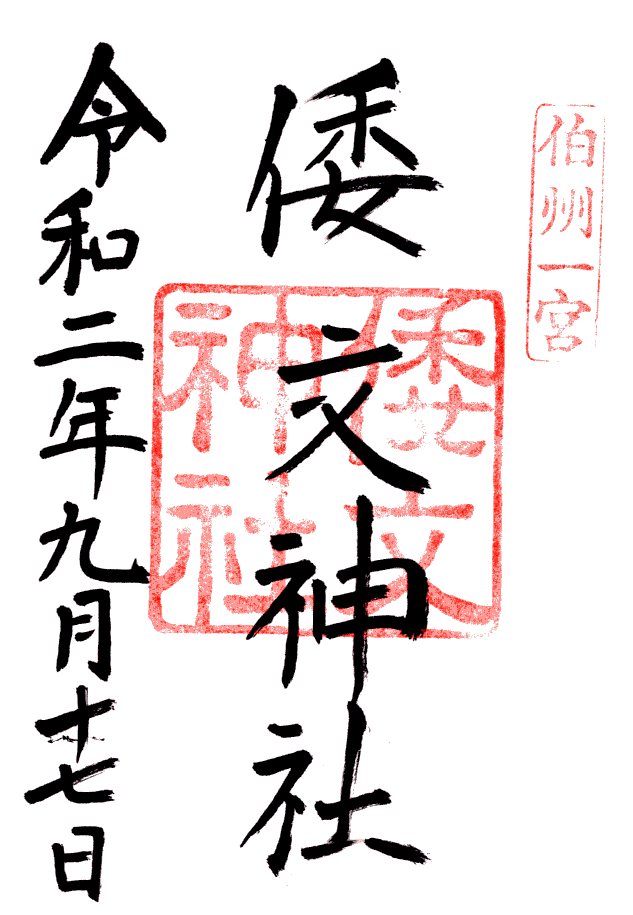 伯州一宮
倭文神社
倭文神社
令和二年九月十七日